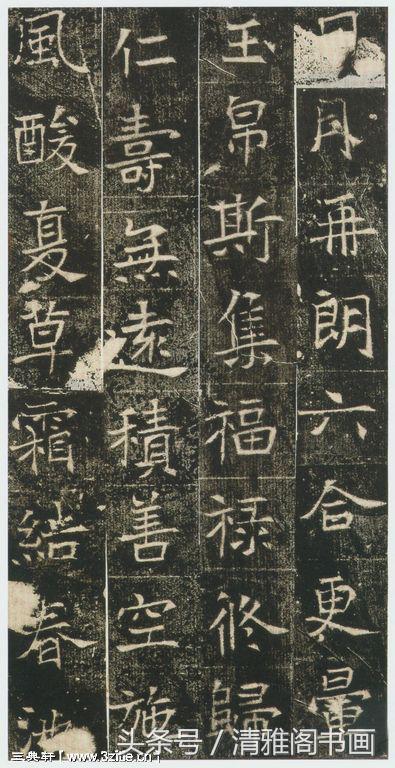 月再朗六合更暈
玉帛斯集福禄攸歸
仁壽無遠積善空施
風酸夏草霜結春
头条号 / 清雅阁书画